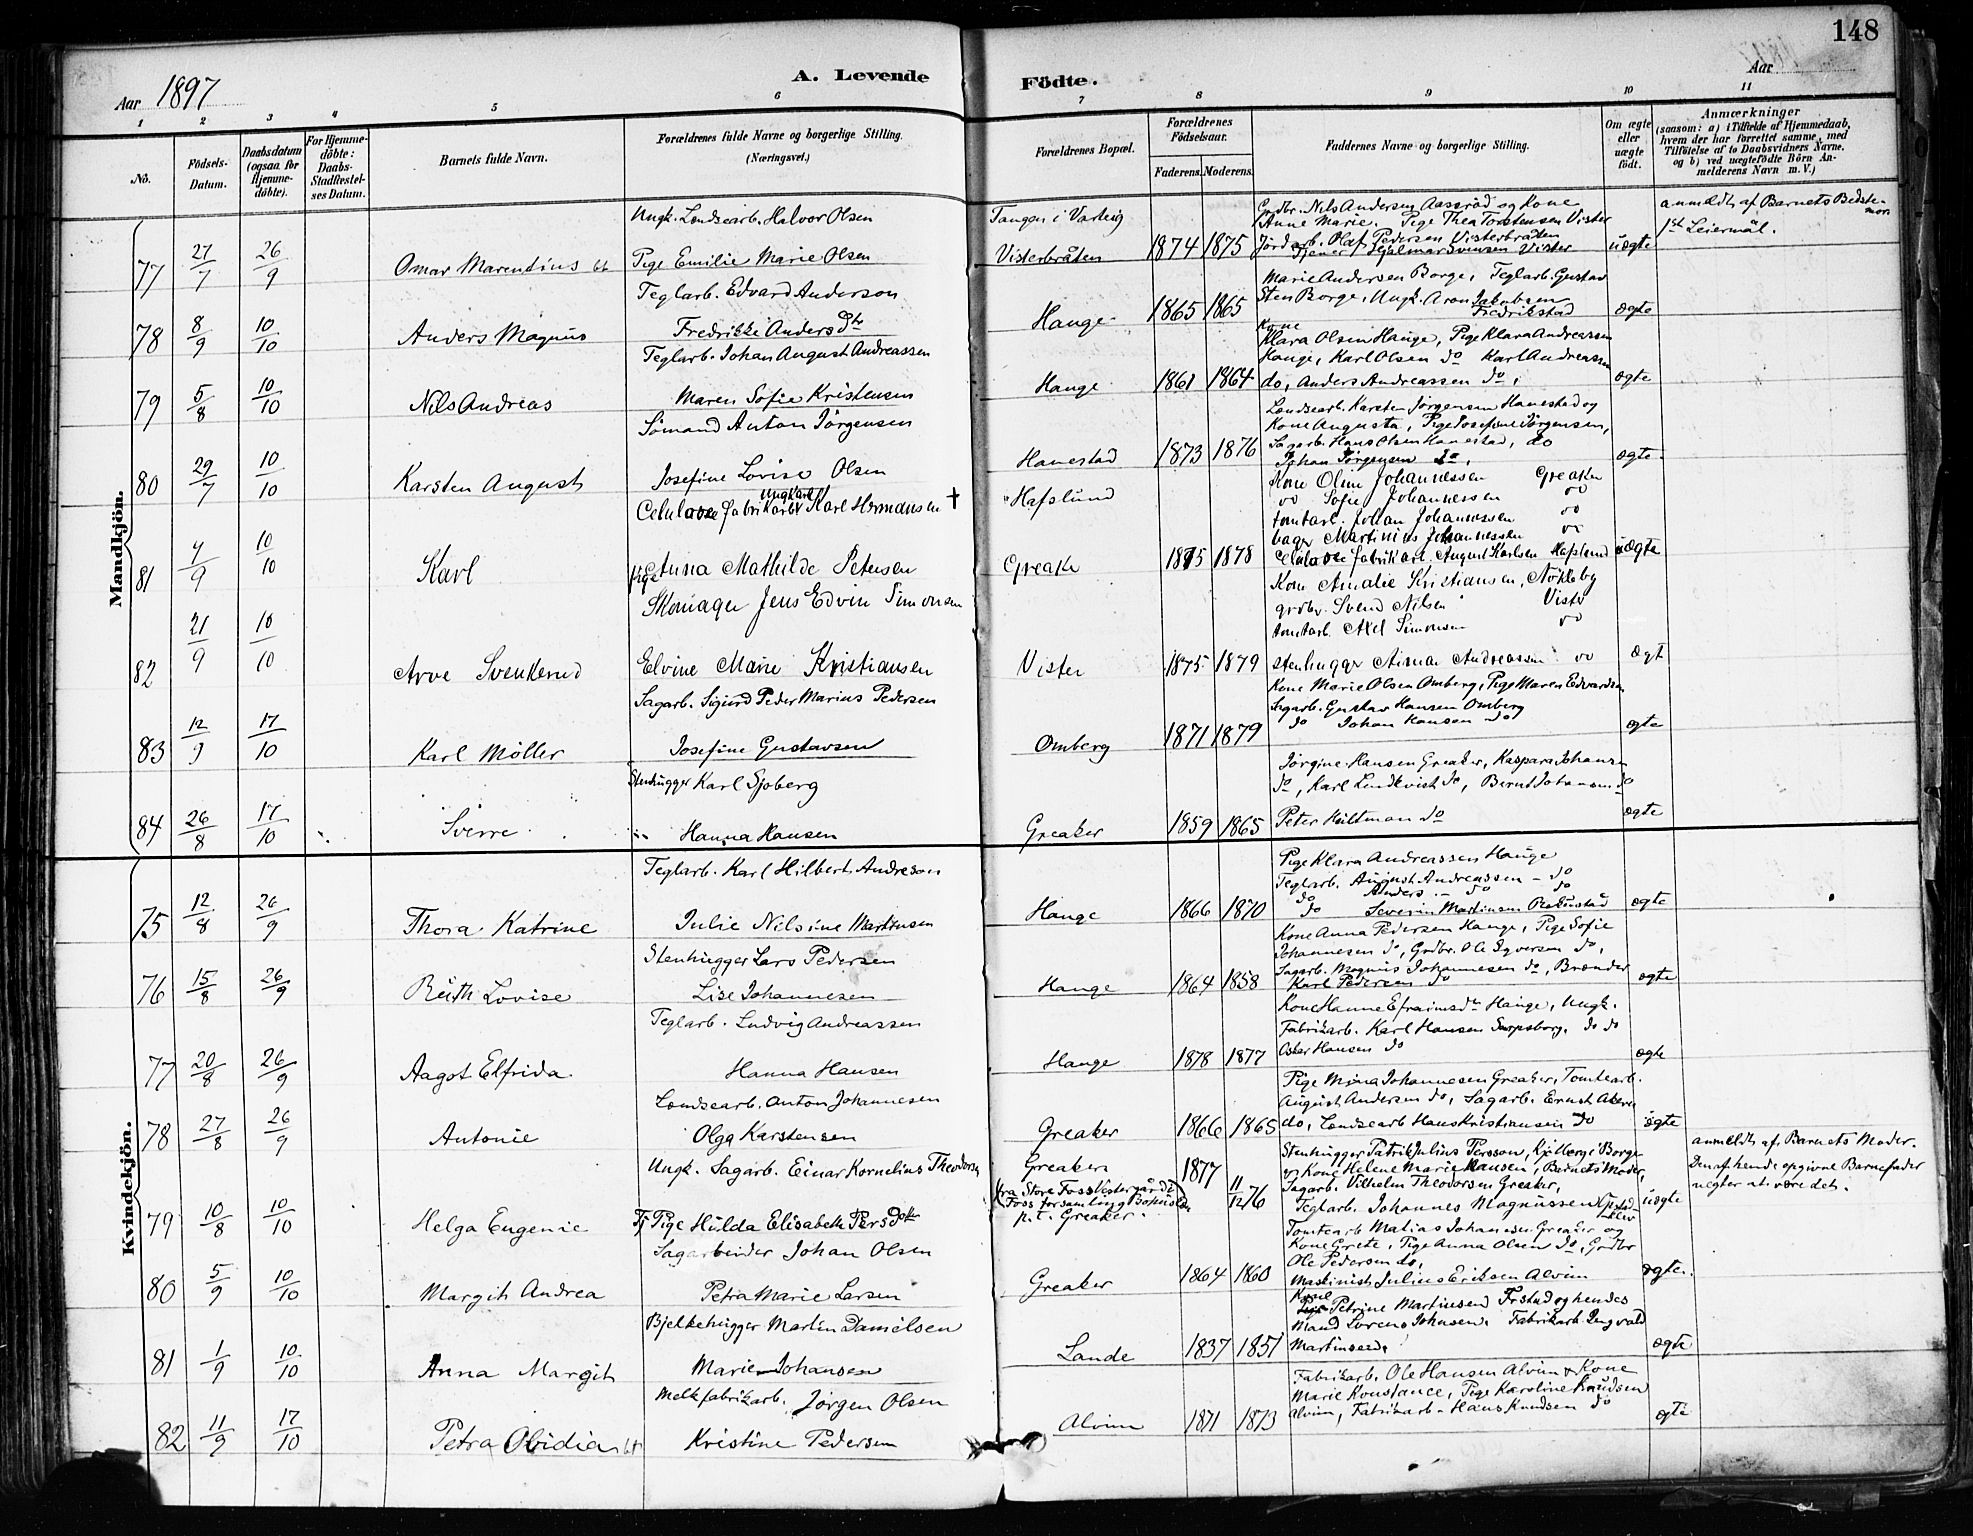 148
Aar 1897
A. Levende Födte.
Aar
1 2 3 4 5 6 7 8 9 10 11
No.
Födsels-Datum.
Daabsdatum (ogsaa for Hjemme-döbte).
For Hjemme-döbte: Daabs-Stadfæstel-ses Datum.
Barnets fulde Navn.
Forældrenes fulde Navne og borgerlige Stilling. (Næringsvei.)
Forældrenes Bopæl.
Forældrenes Födselsaar.
Faderens. Moderens.
Faddernes Navne og borgerlige Stilling.
Om ægte eller uægte födt.
Anmærkninger (saasom: a) i Tilfælde af Hjemmedaab, hvem der har forrettet samme, med Tilföielse af to Daabsvidners Navne, og b) ved uægtefödte Börn An-melderens Navn m. V.)
Mandkjön.
77 27/7 26/9 Omar Marentius
Ungk. Landsearb. Halvor Olsen
Pige Emilie Marie Olsen
Tangen i Varteig
Visterbråten 1874 1875
Grdbr. Nils Andersen Aasröd og Kone
Anne Marie, Pige Thea Torstensen Vister
Jordarb. Olaf Pedersen Visterbråten
Tjener Hjalmar Svensen Vister
uægte
anmeldt af Barnets Bedstemor
1st Leiermål.
78 8/9 10/10 Anders Magnus
Teglarb. Edvard Anderson
Fredrikke Andersdtr
Hauge 1865 1865
Marie Andersen Borge, Teglarb. Gustav
Sten Borge, Ungk. Aron Jakobsen
Fredrikstad
ægte
79 5/8 10/10 Nils Andreas
Teglarb. Johan August Andreassen
Maren Sofie Kristensen
Hauge 1861 1864
Kone
Klara Olsen Hauge, Pige Klara Andreassen
Hauge, Karl Olsen do Karl Andreassen
do, Anders Andreassen do,
ægte
80 29/7 10/10 Karsten August
Sömand Anton Jörgensen
Josefine Lovise Olsen
Hanestad 1873 1876
Landsearb. Karsten Jörgensen Hanestad og
Kone Augusta, Pige Josefine Jörgensen,
Sagarb. Hans Olsen Hanestad, do
Johan Jörgensen do,
ægte
81 7/9 10/10 Karl
Celulose fabrikarb. Ungkarl Karl Hermansen †
pige Anna Mathilde Petersen
Hafslund
Greaker 1875 1878
Kone Oline Johannessen Greaker
do Sofie Johannessen do
tomtarb. Johan Johannessen do
bager Martinius Johannessen do
Celulose fabrikarb. August Karlsen Hafslund
uægte
82 21/9 10/10 Arve Svenkerud
Skomager Jens Edvin Simonsen
Elvine Marie Kristiansen
Vister 1875 1879
Kone Amalie Kristiansen, Nökleby
grdbr. Svend Nilsen Vister
tomtarb. Axel Simonsen do
stenhugger Andreassen do
ægt
83 12/9 17/10 Karl Möller
Sagarb. Sigurd Peder Marius Pedersen
Josefine Gustavsen
Omberg 1871 1879
Kone Marie Olsen Omberg, Pige Maren Edvardsen
Sagarb. Gustav Hansen Omberg
do Johan Hansen do
ægte
84 26/8 17/10 Sverre
Stenhugger Karl Sjöberg
Hanna Hansen
Greaker 1859 1865
Jörgine Hansen Greaker, Kaspara Johansen
do, Karl Lindkvist do, Bernt Johansen do
Peter Hultman do
ægte
Kvindekjön.
75 12/8 26/9 Thora Katrine
Teglarb. Karl Hilbert Andreson
Julie Nilsine Martinsen
Hauge 1866 1870
Pige Klara Andreassen Hauge
Teglarb. August Andreassen - do
do Anders - do do
do Severin Martinsen
ægte
76 15/8 26/9 Ruth Lovise
Stenhugger Lars Pedersen
Lise Johannesen
Hauge 1864 1858
Kone Anna Pedersen Hauge, Pige Sofie
Johannesen do, Grdbr. Ole Syversen do,
Sagarb. Magnus Johannesen do, Brænder
Karl Pedersen do
ægte
77 20/8 26/9 Aagot Elfrida
Teglarb. Ludvig Andreassen
Hanna Hansen
Hauge 1878 1877
Kone Hanne Efraimsdtr Hauge, Ungk.
Fabrikarb. Karl Hansen Sarpsborg, do do
Oskar Hansen do
ægte
78 27/8 26/9 Antonie
Landsearb. Anton Johannesen
Olga Karstensen
Greaker 1866 1865
Pige Mina Johannesen Greaker, Tomtearb.
August Andersen do, Sagarb. Ernst
do, Landsearb Hans Kristiansen do
ægte
79 10/8 10/10 Helga Eugenie
Ungk. Sagarb. Einar Kornelius Theodorsen
Tj Pige Hulda Elisabeth Persdotter
Greaker 1877
fra Store Foss Vestergård i
Foss forsamling Bohuslen
p.t. Greaker. 11/12 76
Stenhugger Patrik Julius Persson, Borge
og Kone Helene Marie Hansen, Barnets Moder,
Sagarb. Vilhelm Theodorsen Greaker,
Teglarb. Johannes Magnussen
uægte
anmeldt af Barnets Moder.
Den af hende opgivne Barnefader
negter at være det.
80 5/9 10/10 Margit Andrea
Sagarbeider Johan Olsen
Petra Marie Larsen
Greaker 1864 1860
Tomtearb Matias Johansen Greaker og
Kone Grete, Pige Anna Olsen do, Grdbr
Ole Pedersen do,
Maskinist Julius Eriksen Alvim
ægte.
81 1/9 10/10 Anna Margit
Bjelkehugger Martin Danielsen
Marie Johansen
Lande 1837 1851
Kone
Petrine Martinsen og hendes
Mand Lorens Johnsen. Fabrikarb Ingvald
Martinsen
ægte
82 11/9 17/10 Petra Ovidia
Melkfabrikarb. Jörgen Olsen
Kristine Pedersen
Alvim 1871 1873
Fabrikarb. Ole Hansen Alvim & Kone
Marie Konstance, Pige Karoline Knudsen
Alvim, Fabrikarb - Hans Knudsen do
ægte